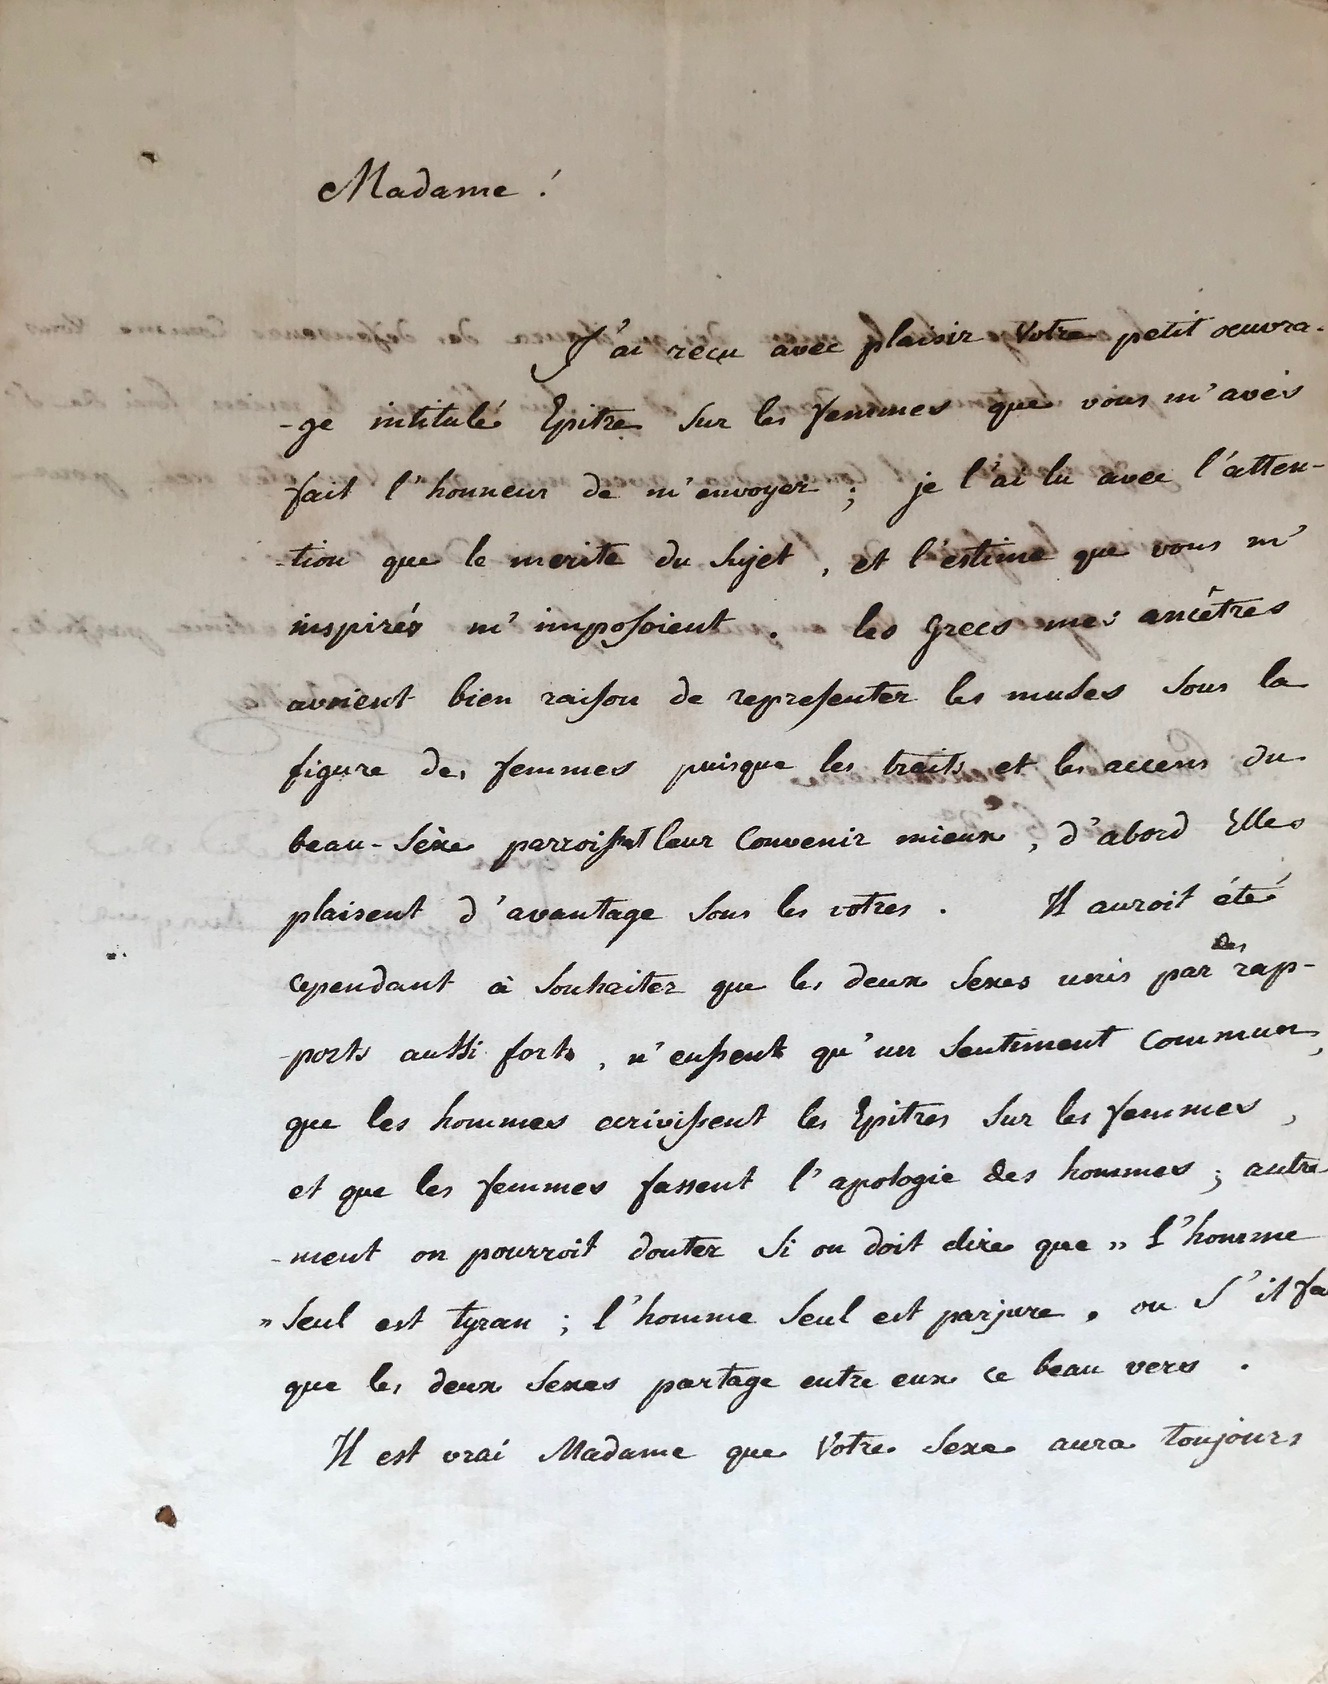 Madame !
J'ai reçu avec plaisir Votre petit oeuvra-
-ge intitulé Epitre sur les femmes que vous m'avés
fait l'honneur de m'envoyer ; je l'ai lu avec l'atten-
-tion que le merite du sujet, et l'estime que vous m'
inspirés m'imposoient . les Grecs mes ancêtres
avoient bien raison de representer les muses sous la
figure des femmes puisque les traits et les accens du
beau-sèxe parroissent leur convenir mieux, d'abord Elles
plaisent d'avantage sous les votres . Il auroit été
cependant à souhaiter que les deux sexes unis par des rap-
-ports aussi forts, n'eussent qu'un sentiment commun,
que les hommes ecrivissent les Epitres sur les femmes,
et que les femmes fassent l'apologie des hommes ; autre
-ment on pourroit douter si on doit dire que „ L'homme
„ seul est tyran ; l'homme seul est parjure . ou s'il
que les deux sexes partage entre eux ce beau vers .
Il est vrai Madame que Votre sexe aura toujours